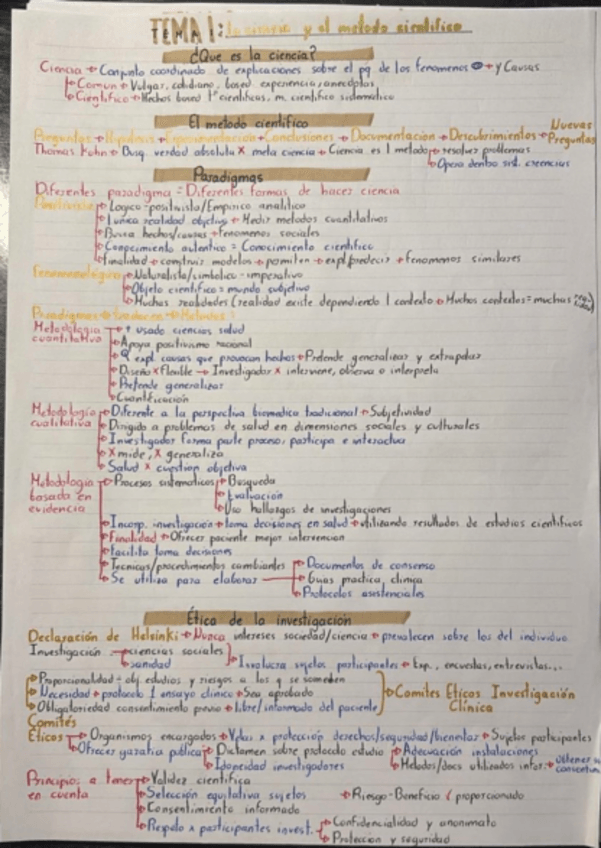 TEMA 1: La ciencia y el metodo cientifico
¿Que es la ciencia?
Ciencia → Conjunto coordinado de explicaciones sobre el pq de los fenomenos → y Causas
Comun → Vulgar, cotidiano, based experiencia, anecdotas
Cientifico → Hechos based 1º cientificas, m. cientifico sistematico
El metodo cientifico
Preguntas → Hipotesis → Experimentacion → Conclusiones → Documentacion → Descubrimientos → Nuevas Preguntas
Thomas Kuhn → Dusq. verdad absoluta X meta ciencia → Ciencia es 1 metodo → resolver problemas
Opera dentro sist. creencias
Paradigmas
Diferentes paradigma = Diferentes formas de hacer ciencia
Positivista → Logico-positivista/Empirico analitico
1 unica realidad objetiva → Medir metodos cuantitativos
Busca hechos/causas → fenomenos sociales
Conocimiento autentico = Conocimiento cientifico
finalidad → construir modelos → permiten → expl/predecir → fenomenos similares
Fenomenologico → Naturalista/simbolico-imperativo
Objeto cientifico = mundo subjetivo
Muchas realidades (realidad existe dependiendo 1 contexto → Muchos contextos = muchas
Paradigmas → Metodos:
Metodologia cuantitativa → + usado ciencias salud
Apoya positivismo racional
expl causas que provocan hechos → Pretende generalizar y extrapolar
Diseño X flexible → Investigador X interviene, observa o interpreta
Pretende generalizar
Cuantificación
Metodología cualitativa → Diferente a la perspectiva biomedica tradicional → Subjetividad
Dirigido a problemas de salud en dimensiones sociales y culturales
Investigador forma parte proceso, participa e interactua
X mide, X generaliza
Salud X cuestion objetiva
Metodología basada en evidencia → Procesos sistematicos → Busqueda
Evaluación
Uso hallazgos de investigaciones
Incorp. investigación → toma decisiones en salud → utilizando resultados de estudios cientificos
Finalidad → Ofrecer paciente mejor intervencion
Facilita toma decisiones
Tecnicas/procedimientos cambiantes
Se utiliza para elaborar → Documentos de consenso
Guias practica clinica
Protocolos asistenciales
Ética de la investigación
Declaración de Helsinki → Nunca intereses sociedad/ciencia → prevalecen sobre los del individuo
Investigación → ciencias sociales
sanidad
Involucra sujetos participantes → Exp., encuestas, entrevistas...
Proporcionalidad → obj. estudios y riesgos a los q se someden
Necesidad → protocolo 1 ensayo clinico → Sea aprobado
Obligatoriedad consentimiento previo → libre/informado del paciente
Comites Eticos Investigación Clínica
Comités Eticos → Organismos encargados → Velar x protección derechos/seguridad/bienestar → Sujetos participantes
Ofrecer garatia publica → Dictamen sobre protocolo estudio
Idoneidad investigadores
Adecuación instalaciones
Metodos/docs utilizados infor.
Principios a tener en cuenta → Validez cientifica
Selección equitativa sujetos
→ Riesgo-Beneficio / proporcionado
Consentimiento informado
Respeto x participantes invest. → Confidencialidad y anonimato
Proteccion y seguridad